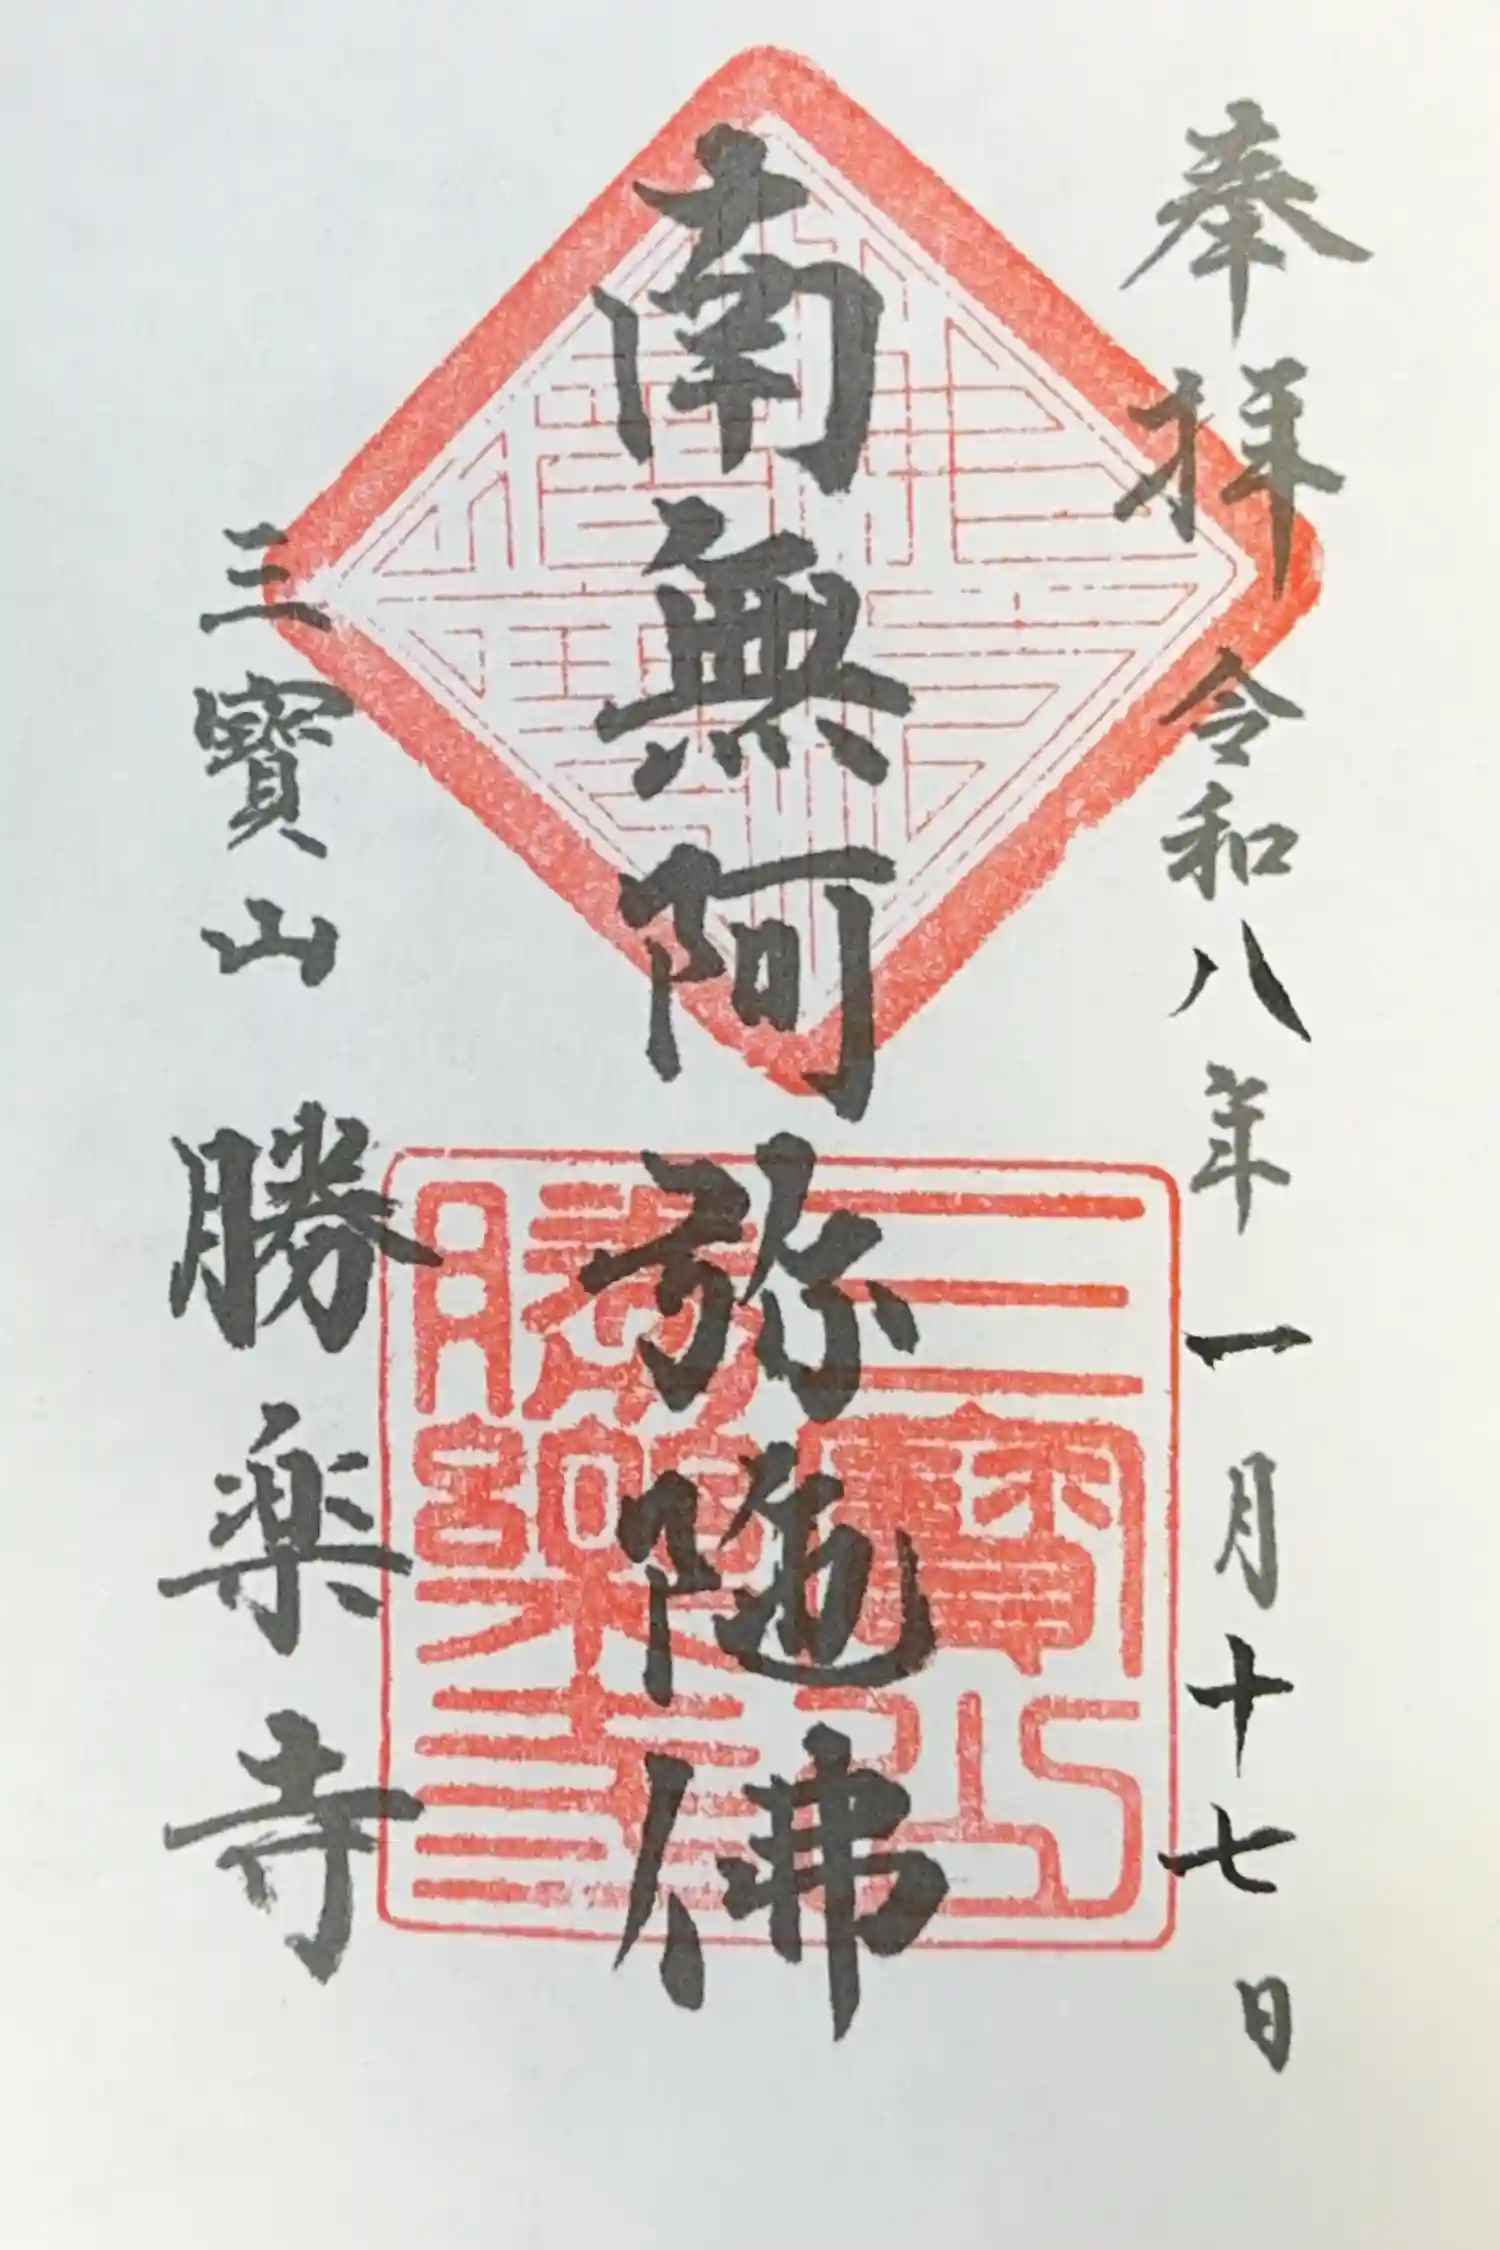 奉拝 令和八年一月十七日
南無阿弥陀佛
三寶山 勝楽寺
三寶山
勝樂寺
佛法僧寶